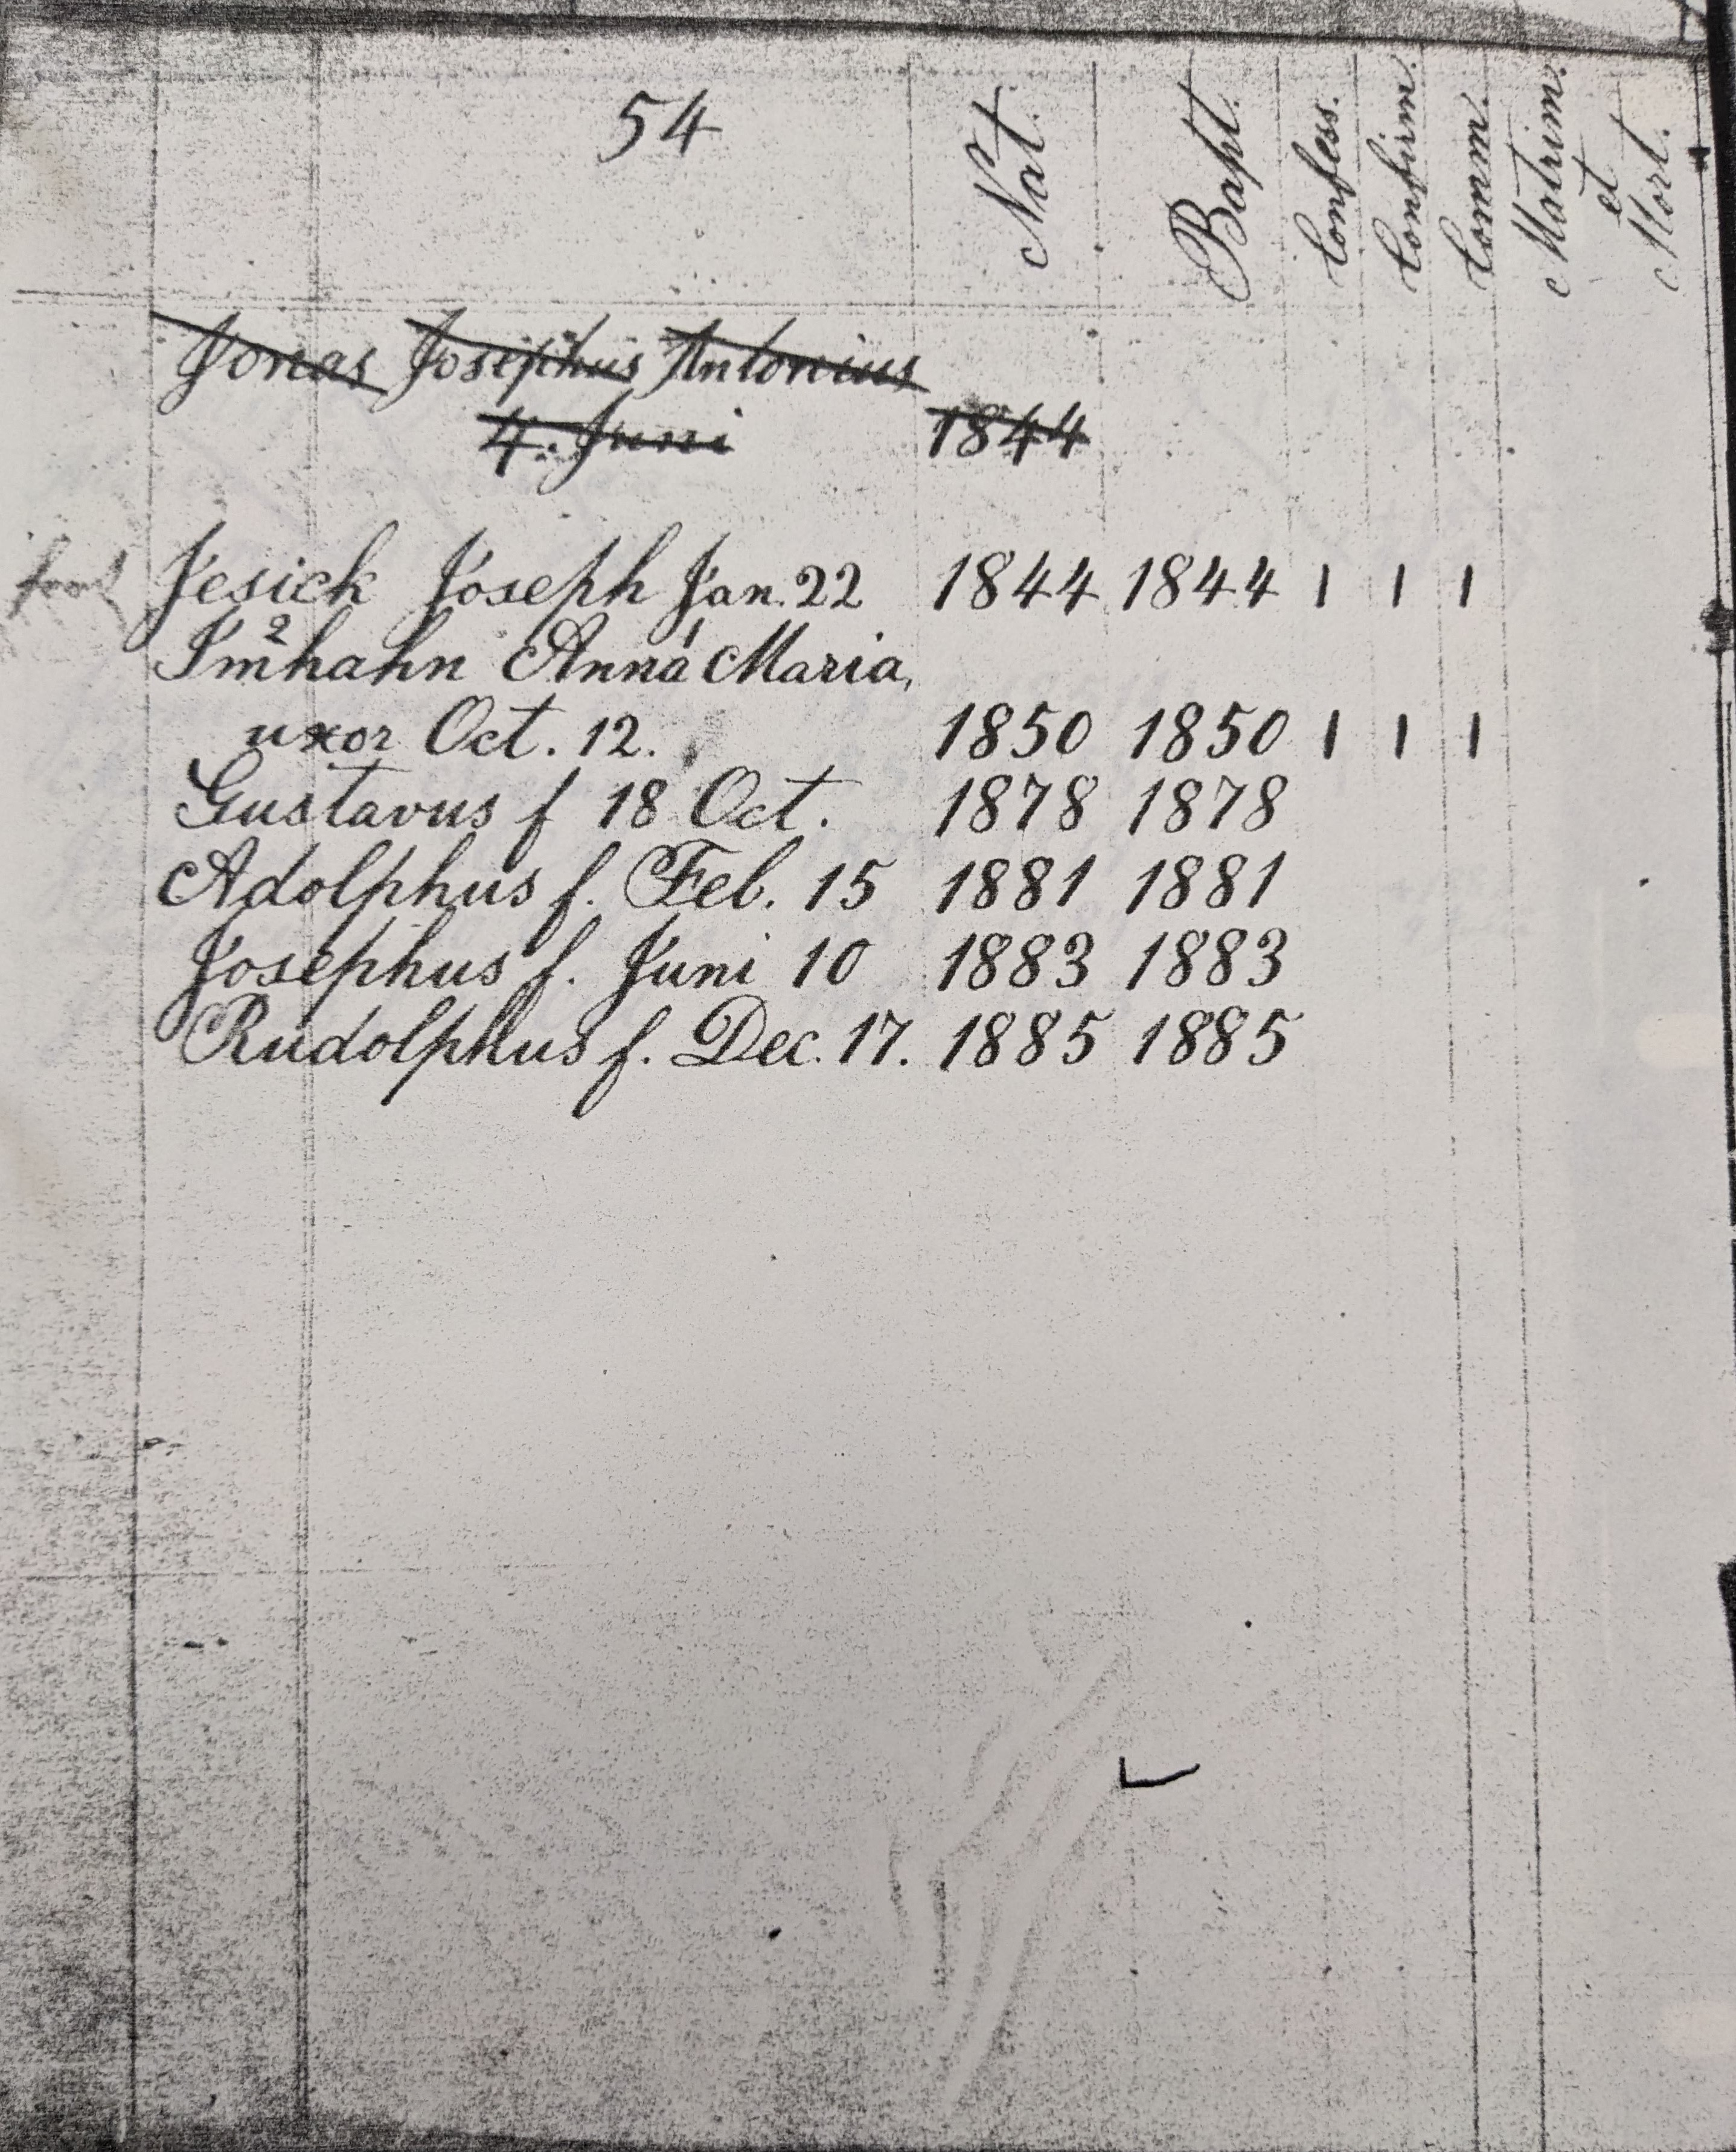 54
Nat. Bapt. Confess. Confirm. Comm. Matrim. et Mort.
Jonas Josephus Antonius
4. Juni 1844
Jesick Joseph Jan. 22 1844 1844 1 1 1
2 1
Imhahn Anna Maria,
uxor Oct. 12. 1850 1850 1 1 1
Gustavus f 18 Oct. 1878 1878
Adolphus f. Feb. 15 1881 1881
Josephus f. Juni 10 1883 1883
Rudolphus f. Dec. 17. 1885 1885